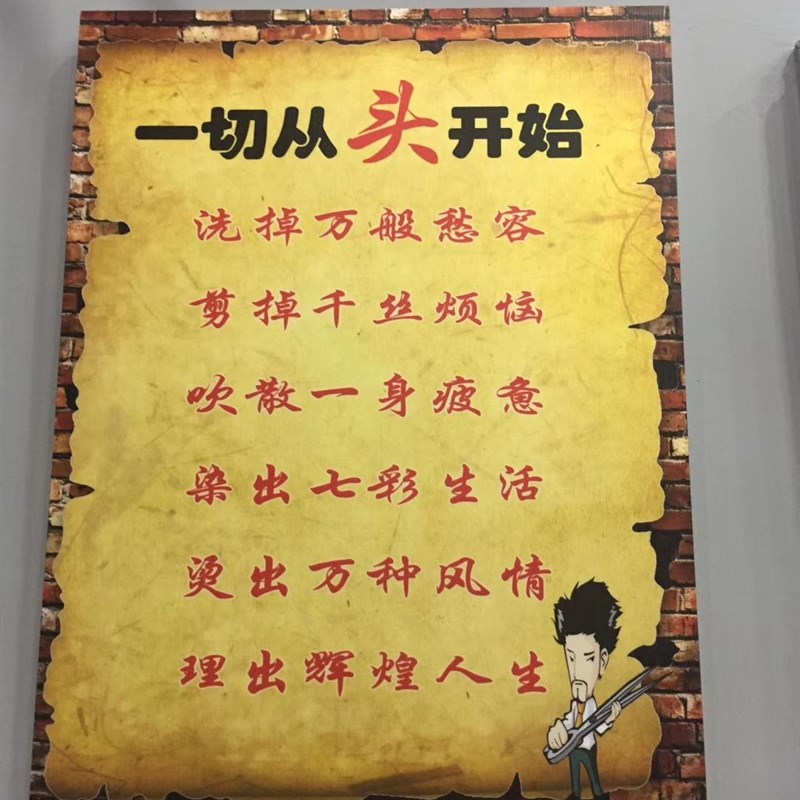 一切从头开始
洗掉万般愁容
剪掉千丝烦恼
吹散一身疲惫
染出七彩生活
烫出万种风情
理出辉煌人生